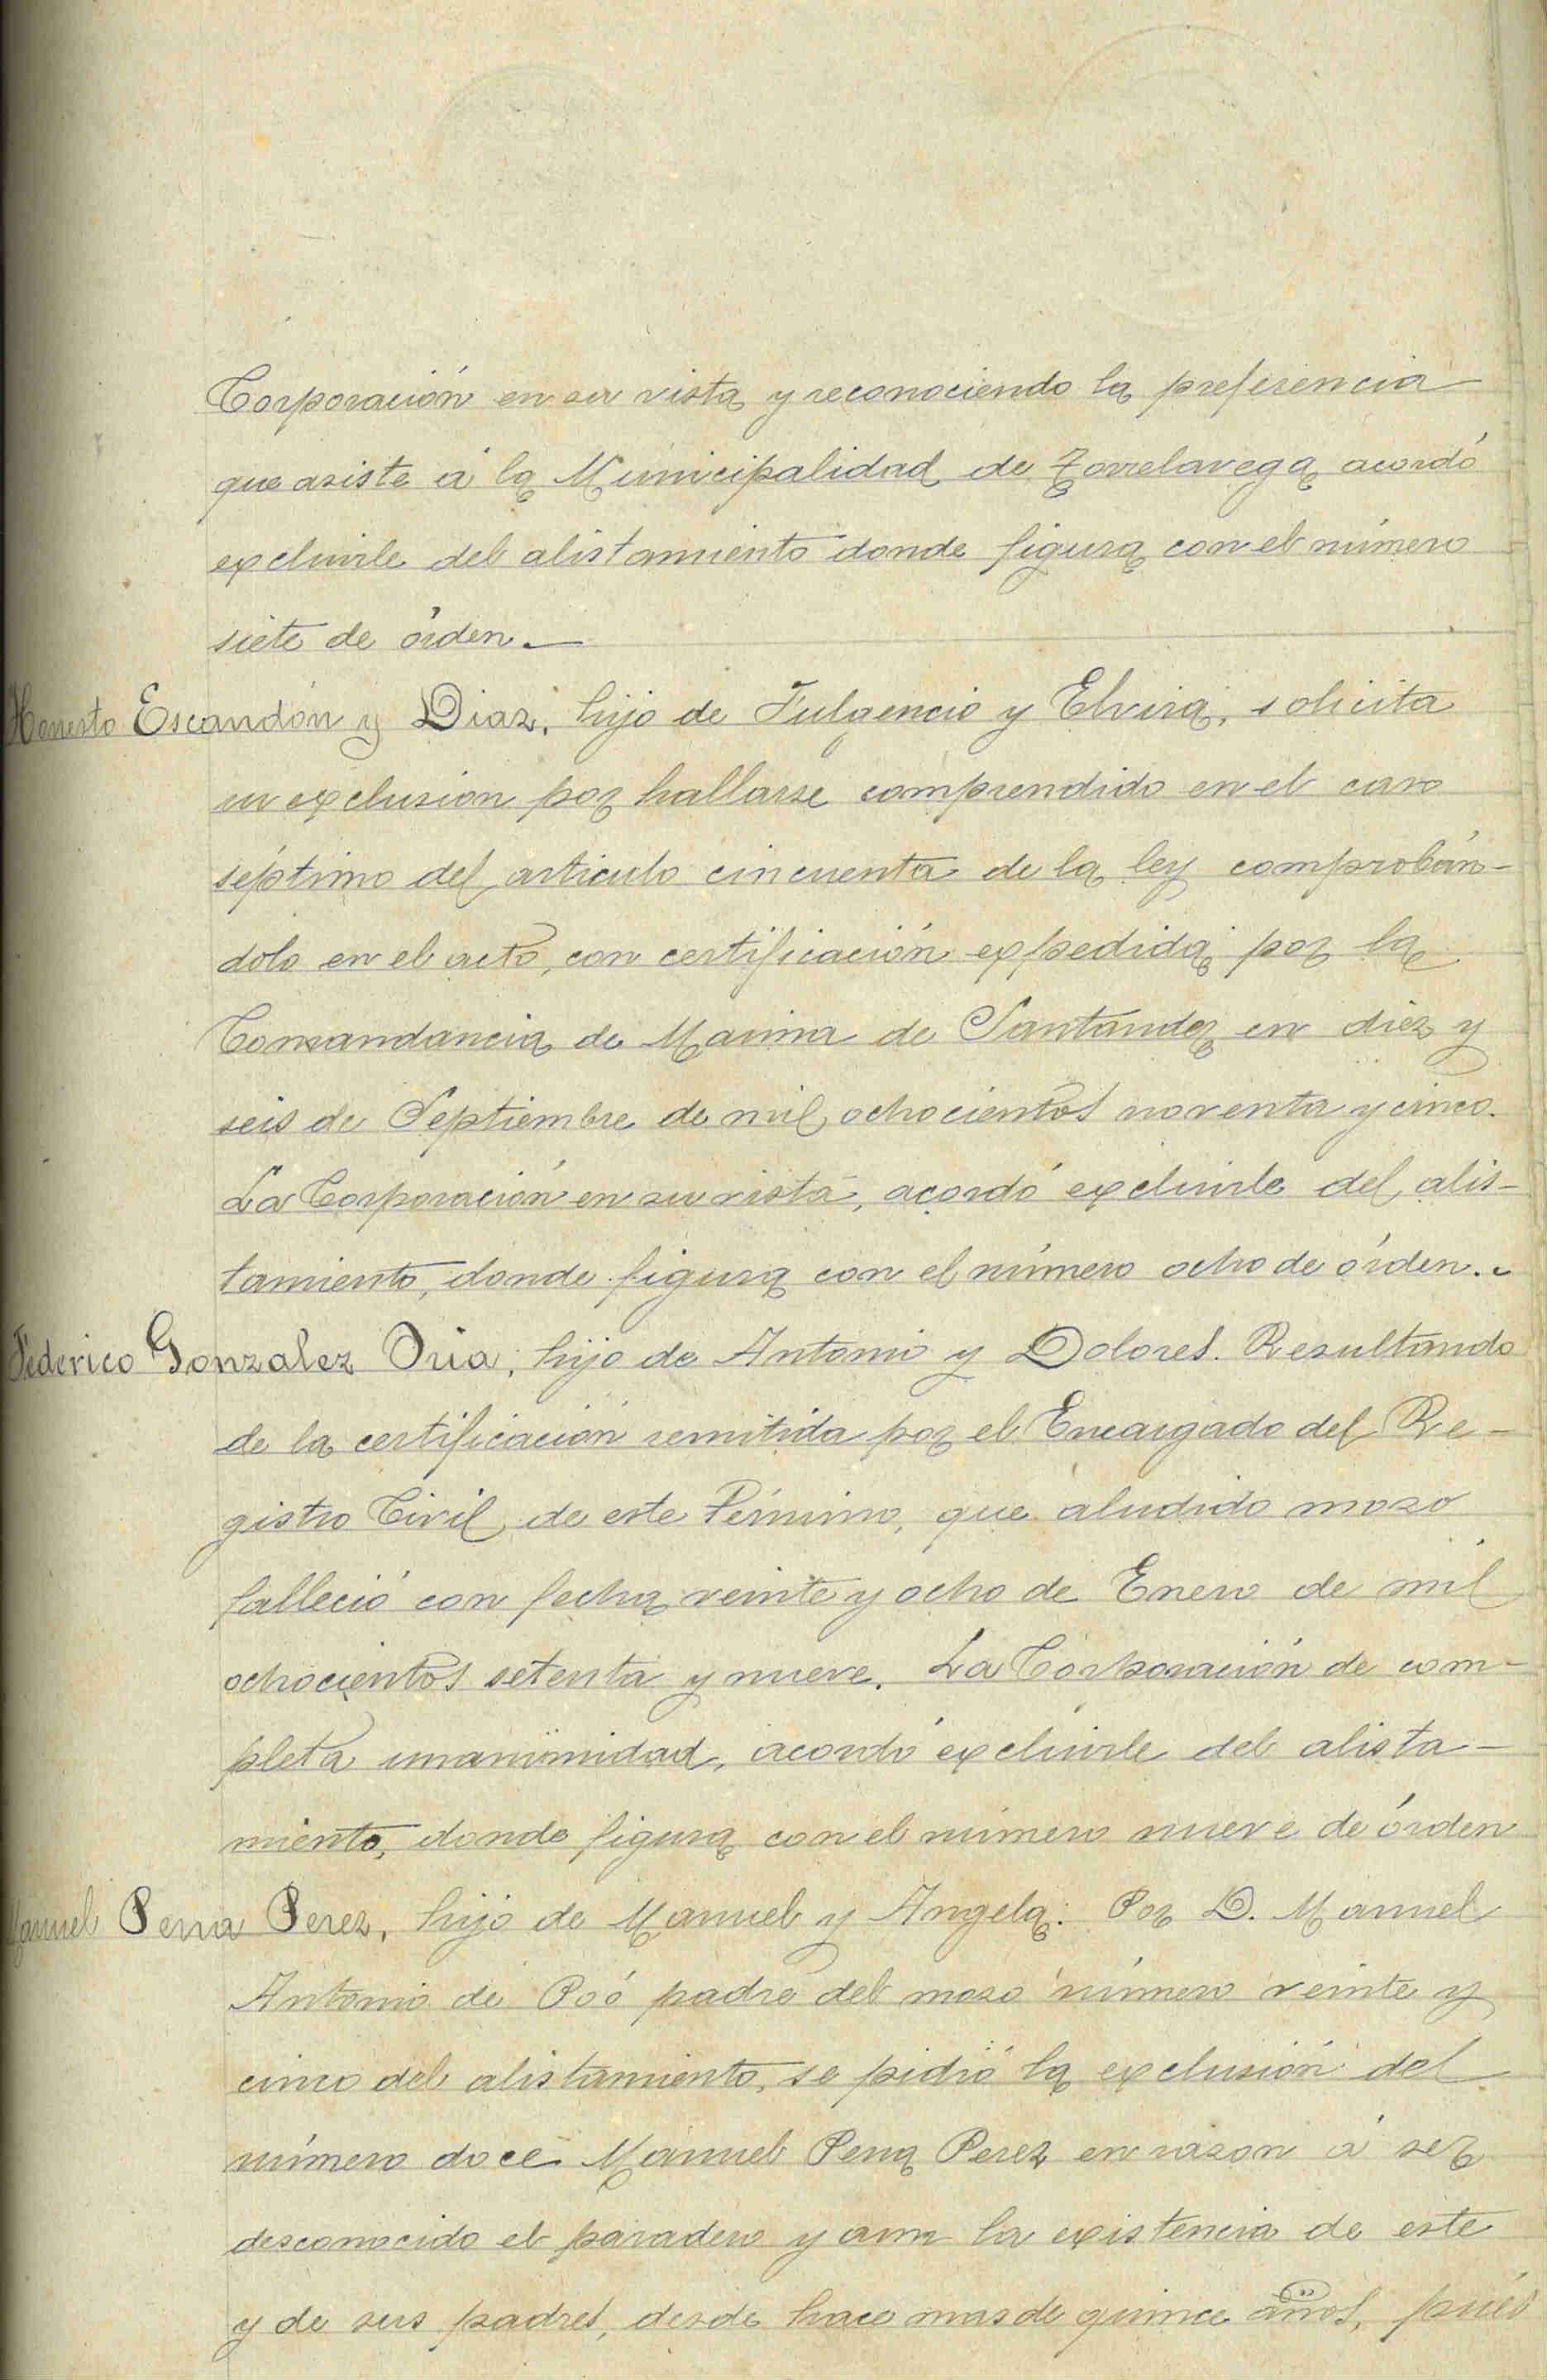 Corporación en su vista y reconociendo la preferencia
que asiste á la Municipalidad de Torrelavega acordó
excluirle del alistamiento donde figura con el número
siete de órden.—
Honesto Escandón y Diaz, hijo de Fulgencio y Elvira, solicita
su exclusion por hallarse comprendido en el caso
séptimo del articulo cincuenta de la ley comprobán-
dolo en el acto, con certificación expedida por la
Comandancia de Marina de Santander en diez y
seis de Septiembre de mil ochocientos noventa y cinco.
La Corporación en su vista, acordó excluirle del alis-
tamiento, donde figura con el número ocho de órden.
Federico Gonzalez Oria, hijo de Antonio y Dolores. Resultando
de la certificación remitida por el Encargado del Re-
gistro Civil de este Término, que aludido mozo
falleció con fecha veinte y ocho de Enero de mil
ochocientos setenta y nueve. La Corporación de com-
pleta unanimidad, acordó excluirle del alista-
miento, donde figura con el número nueve de órden
Manuel Pena Perez, hijo de Manuel y Angela. Por D. Manuel
Antonio de Poó padre del mozo número veinte y
cinco del alistamiento, se pidió la exclusión del
número doce Manuel Pena Perez en razon á ser
desconocido el paradero y aun la existencia de este
y de sus padres, desde hace mas de quince años, pués